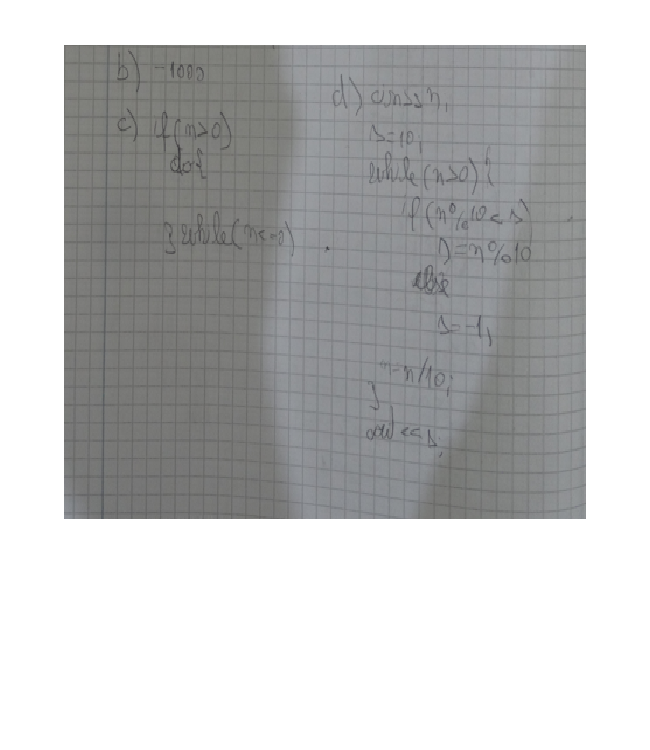 b) -1000
c) if(n>0)
do{
}while(n<=0)
d) cin>>n;
s=10;
while(n>0){
if(n%10<s)
s=n%10
else
s=-1;
n=n/10;
}
cout<<s;